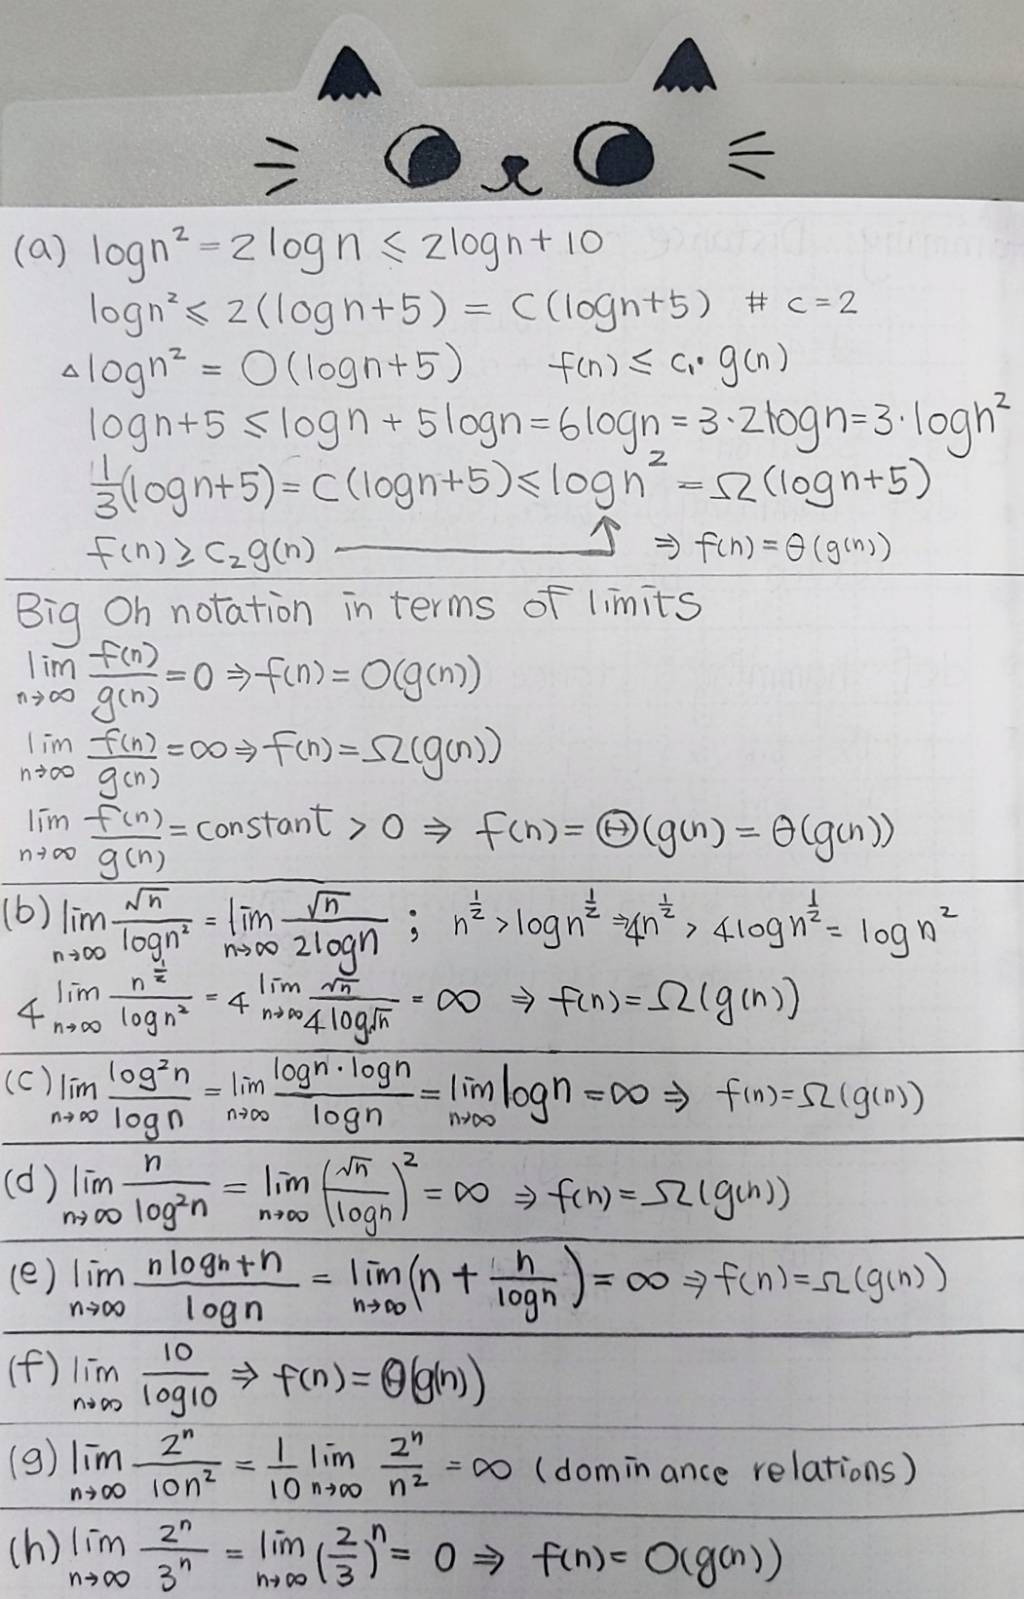 (a) logn² = 2logn ≤ 2logn + 10
logn² ≤ 2(logn+5) = C(logn+5) # c = 2
▵logn² = O(logn+5) f(n) ≤ c₁· g(n)
logn+5 ≤ logn + 5logn = 6logn = 3·2logn = 3·logn²
1/3(logn+5) = C(logn+5) ≤ logn² = Ω(logn+5)
f(n) ≥ c₂g(n) ⇒ f(n) = θ(g(n))
Big Oh notation in terms of limits
lim n→∞ f(n)/g(n) = 0 ⇒ f(n) = O(g(n))
lim n→∞ f(n)/g(n) = ∞ ⇒ f(n) = Ω(g(n))
lim n→∞ f(n)/g(n) = constant > 0 ⇒ f(n) = Θ(g(n) = θ(g(n))
(b) lim n→∞ √n/logn² = lim n→∞ √n/2logn ; n^½ > logn^½ ⇒ 4n^½ > 4logn^½ = logn²
4 lim n→∞ n^½/logn² = 4 lim n→∞ √n/4log√n = ∞ ⇒ f(n) = Ω(g(n))
(c) lim n→∞ log²n/logn = lim n→∞ logn·logn/logn = lim n→∞ logn = ∞ ⇒ f(n) = Ω(g(n))
(d) lim n→∞ n/log²n = lim n→∞ (√n/logn)² = ∞ ⇒ f(n) = Ω(g(n))
(e) lim n→∞ nlogn+n/logn = lim n→∞ (n + n/logn) = ∞ ⇒ f(n) = Ω(g(n))
(f) lim n→∞ 10/log10 ⇒ f(n) = θ(g(n))
(g) lim n→∞ 2ⁿ/10n² = 1/10 lim n→∞ 2ⁿ/n² = ∞ (dominance relations)
(h) lim n→∞ 2ⁿ/3ⁿ = lim n→∞ (2/3)ⁿ = 0 ⇒ f(n) = O(g(n))